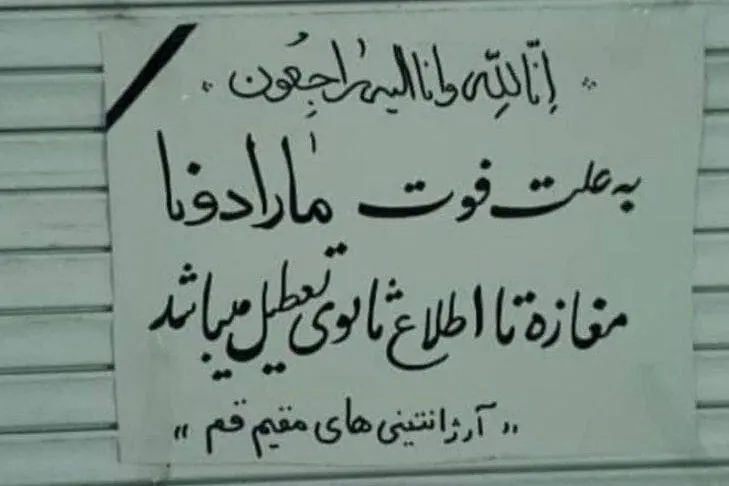 إنّا لِلّٰهِ وانا الیه راجِعُون
به علت فوت مارادونا
مغازه تا اطلاع ثانوی تعطیل میباشد
„ آرژانتینی های مقیم قم „